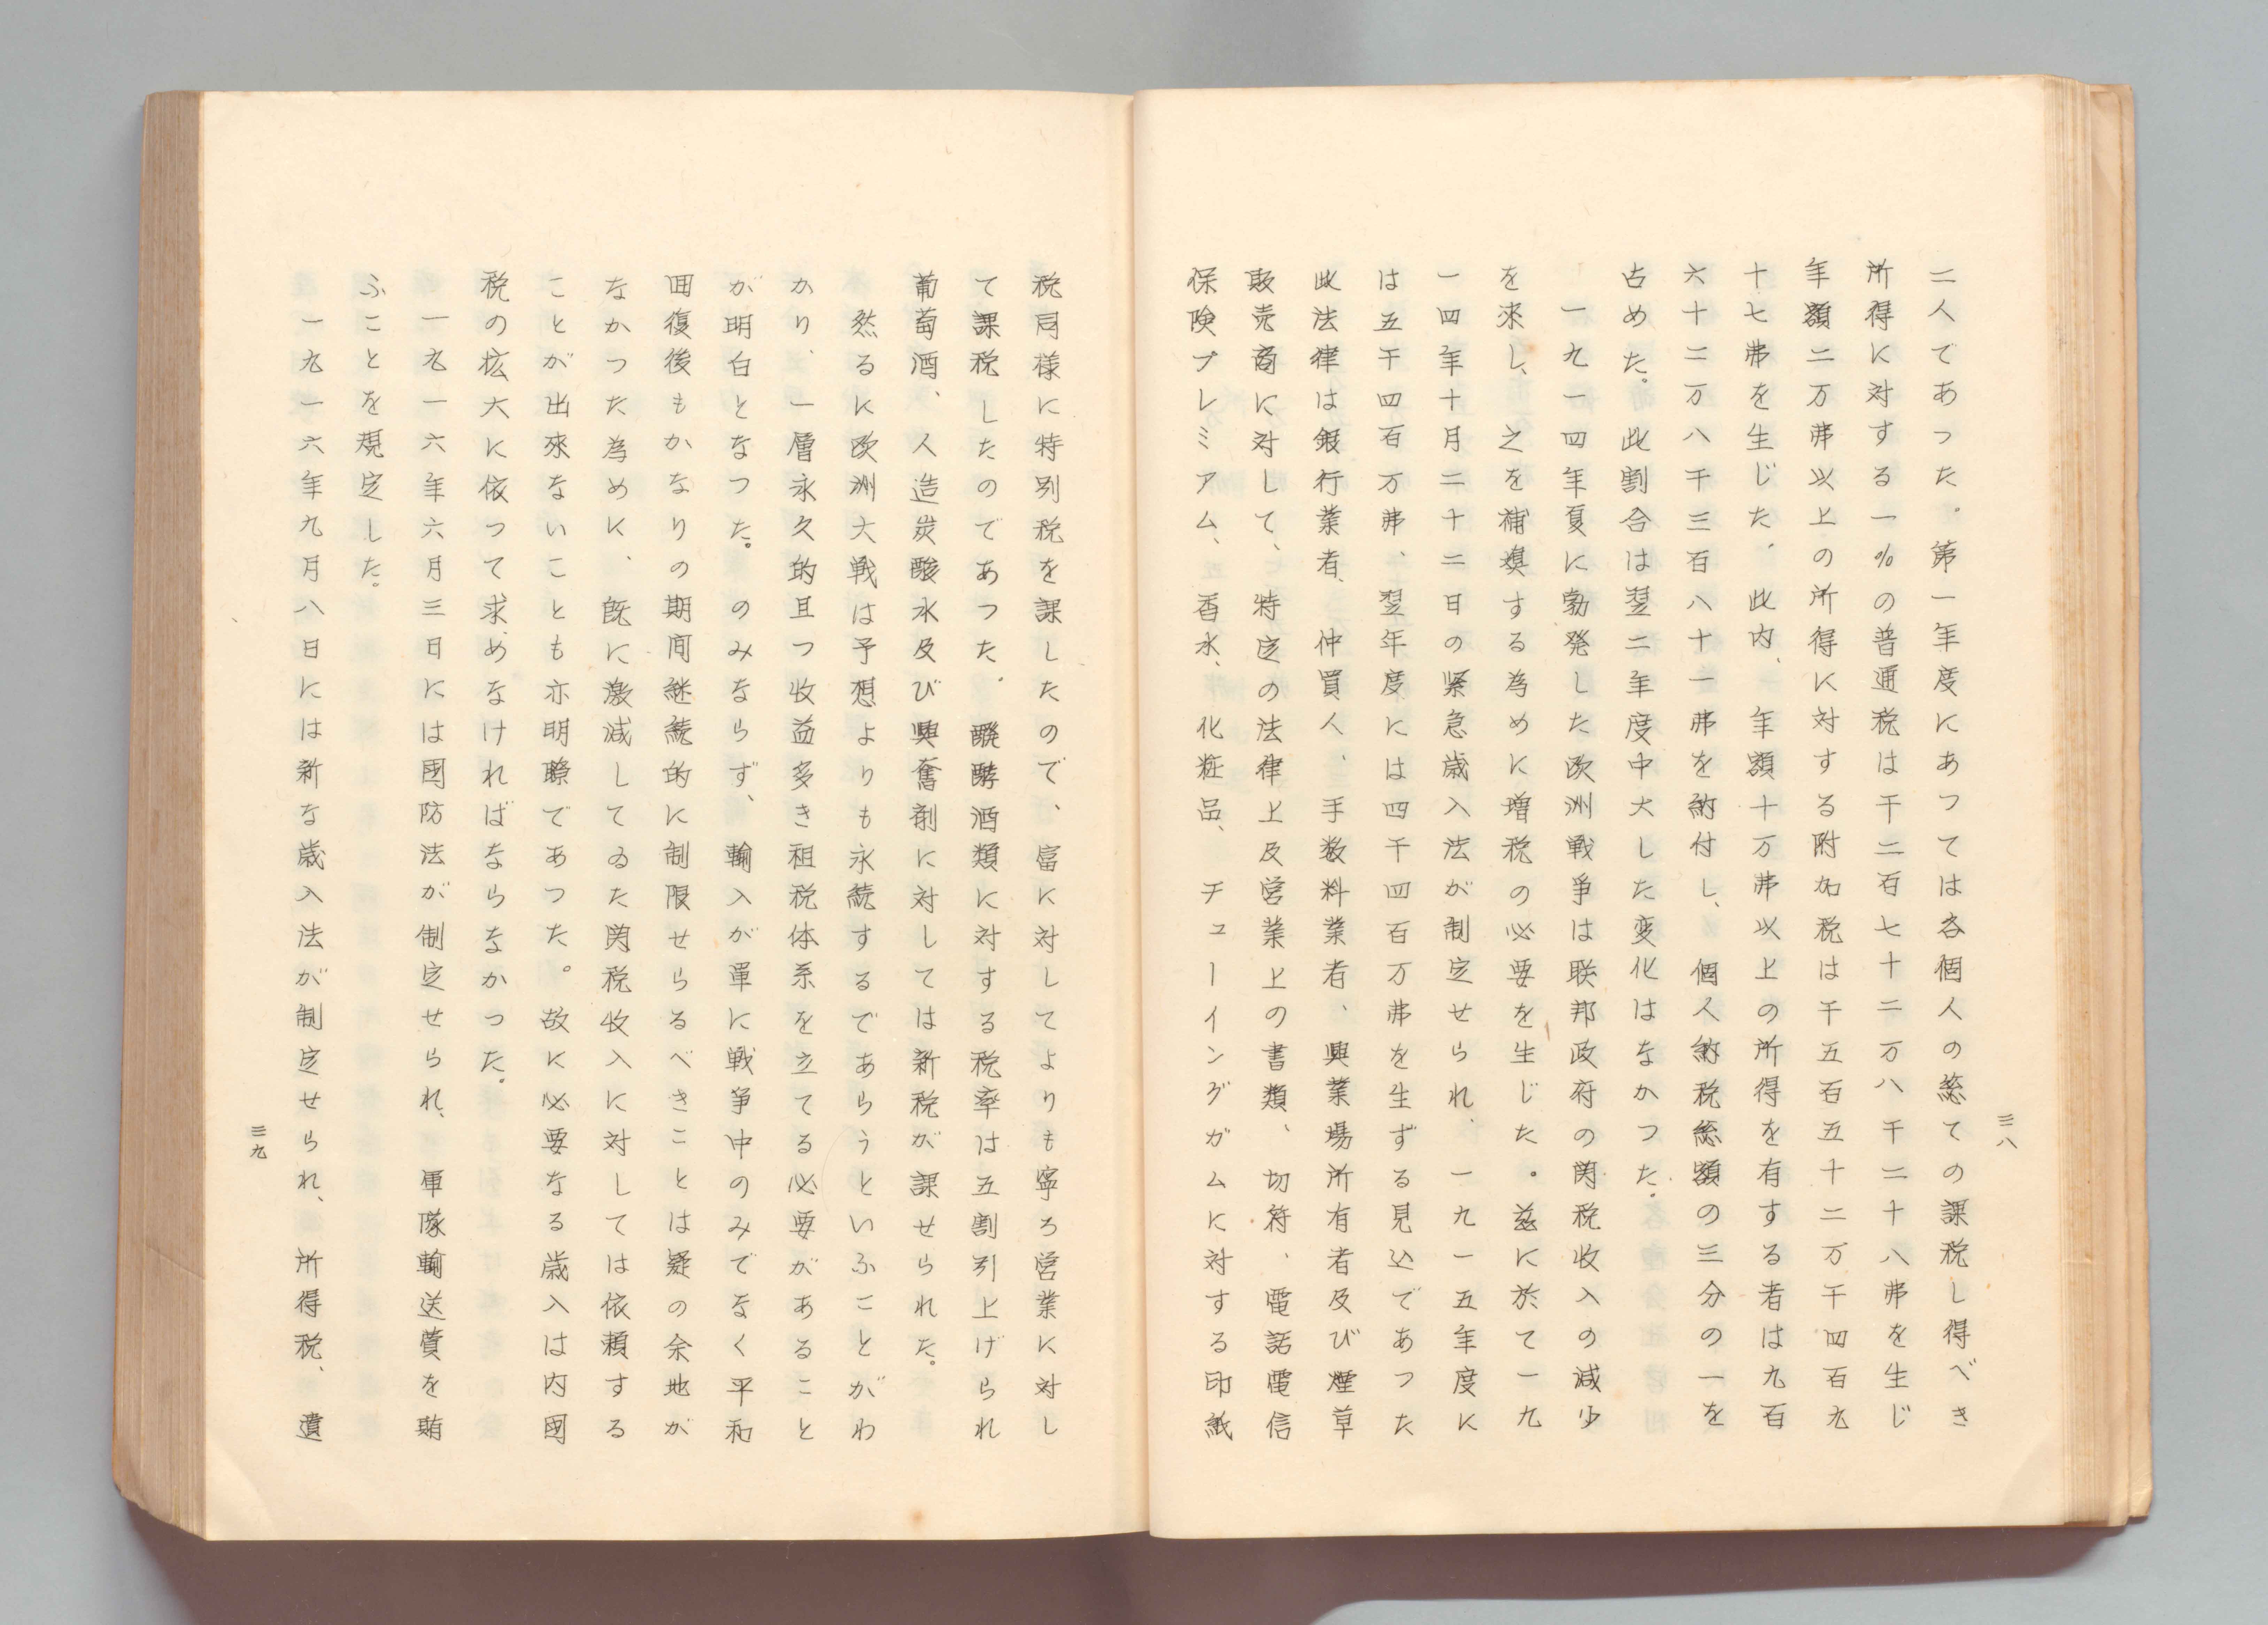 三八
二人であつた。第一年度にあつては各個人の総ての課税し得べき
所得に対する一%の普通税は千二百七十二万八千二十八弗を生じ
年額二万弗以上の所得に対する附加税は千五百五十二万千四百九
十七弗を生じた。此内、年額十万弗以上の所得を有する者は九百
六十二万八千三百八十一弗を納付し、個人納税総額の三分の一を
占めた。此割合は翌二年度中大した変化はなかつた。
一九一四年夏に勃発した欧洲戦争は联邦政府の関税收入の減少
を來し、之を補塡する為めに增税の必要を生じた。茲に於て一九
一四年十月二十二日の緊急歳入法が制定せられ、一九一五年度に
は五千四百万弗、翌年度には四千四百万弗を生ずる見込であつた
此法律は銀行業者、仲買人、手数料業者、興業場所有者及び煙草
販売商に対して、特定の法律上及営業上の書類、切符、電話電信
保険プレミアム、香水、化粧品、チューイングガムに対する印紙
税同様に特別税を課したので、富に対してよりも寧ろ営業に対し
て課税したのであつた。醗酵酒類に対する税率は五割引上げられ
葡萄酒、人造炭酸水及び興奮剤に対しては新税が課せられた。
然るに欧洲大戦は予想よりも永続するであらうといふことがわ
かり、一層永久的且つ收益多き租税体系を立てる必要があること
が明白となつた。のみならず、輸入が單に戦争中のみでなく平和
囘復後もかなりの期間継続的に制限せらるべきことは疑の余地が
なかつた為めに、既に激減してゐた関税收入に対しては依頼する
ことが出來ないことも亦明瞭であつた。故に必要なる歳入は内國
税の拡大に依つて求めなければならなかつた。
一九一六年六月三日には國防法が制定せられ、軍隊輸送費を賄
ふことを規定した。
一九一六年九月八日には新な歳入法が制定せられ、所得税、遺
三九